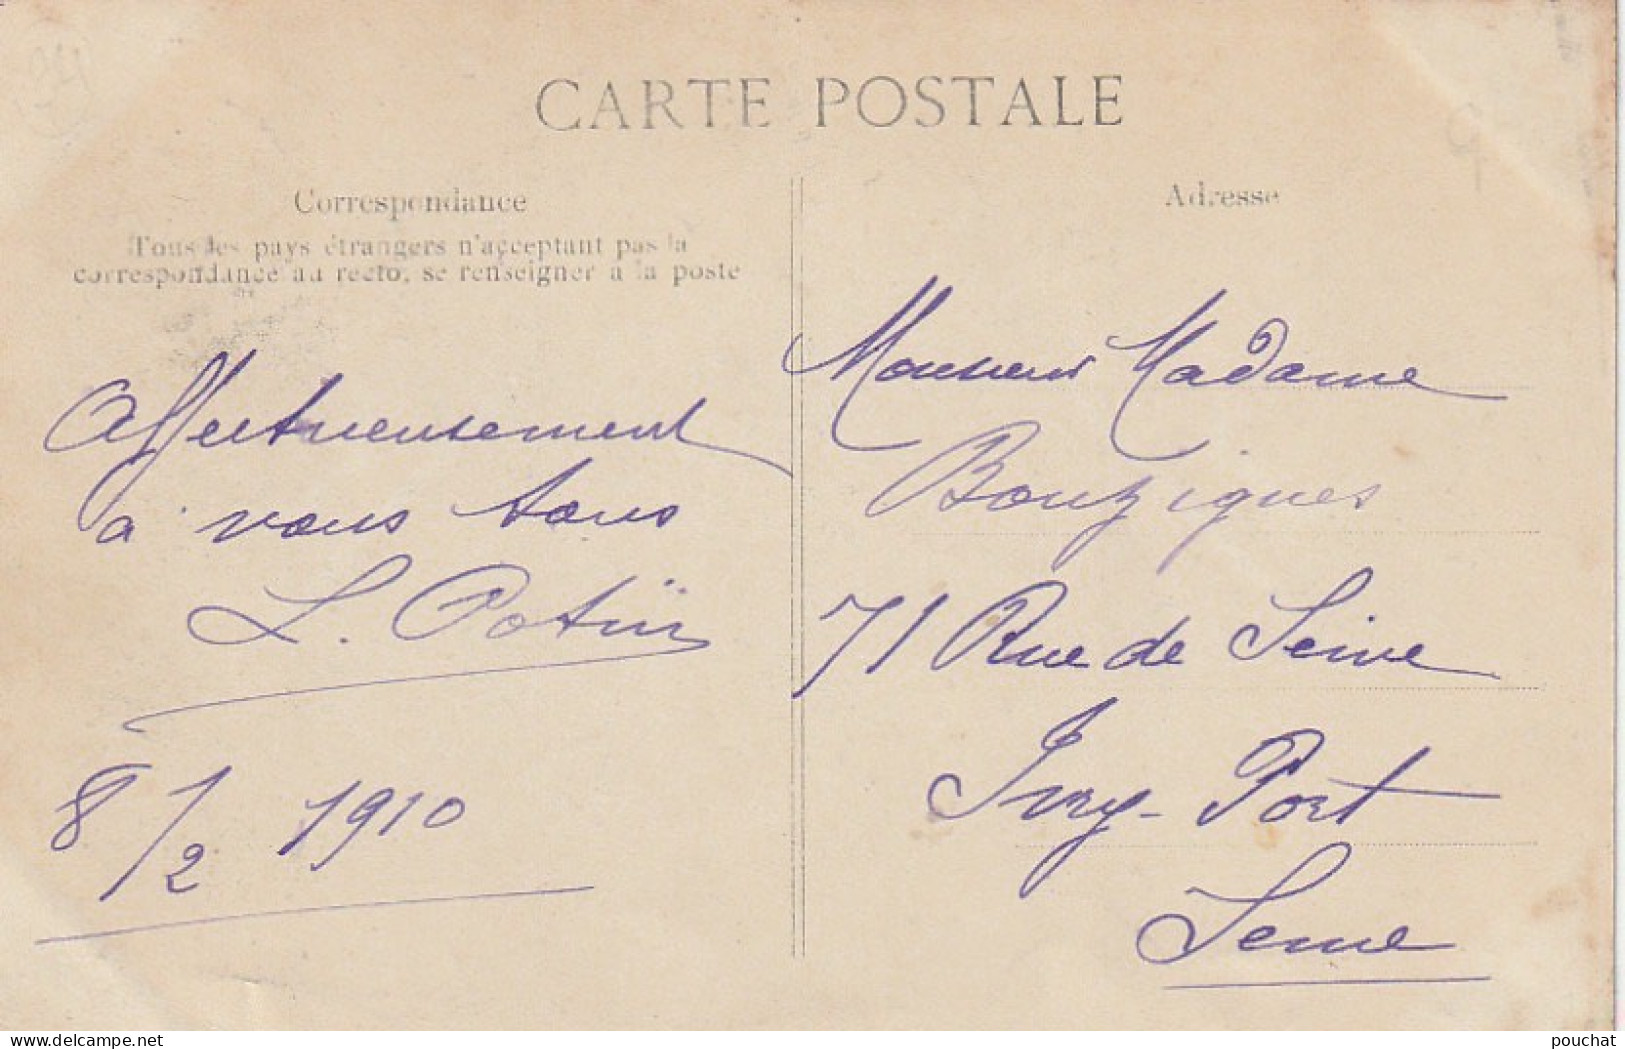 CARTE POSTALE
Correspondance
Tous les pays étrangers n'acceptant pas la
correspondance au recto, se renseigner à la poste
Affectueusement
à vous tous
L. Potin
8/2 1910
Adresse
Monsieur Madame
Bouzigues
71 Rue de Seine
Ivry-Port
Seine
delcampe.net
pouchat